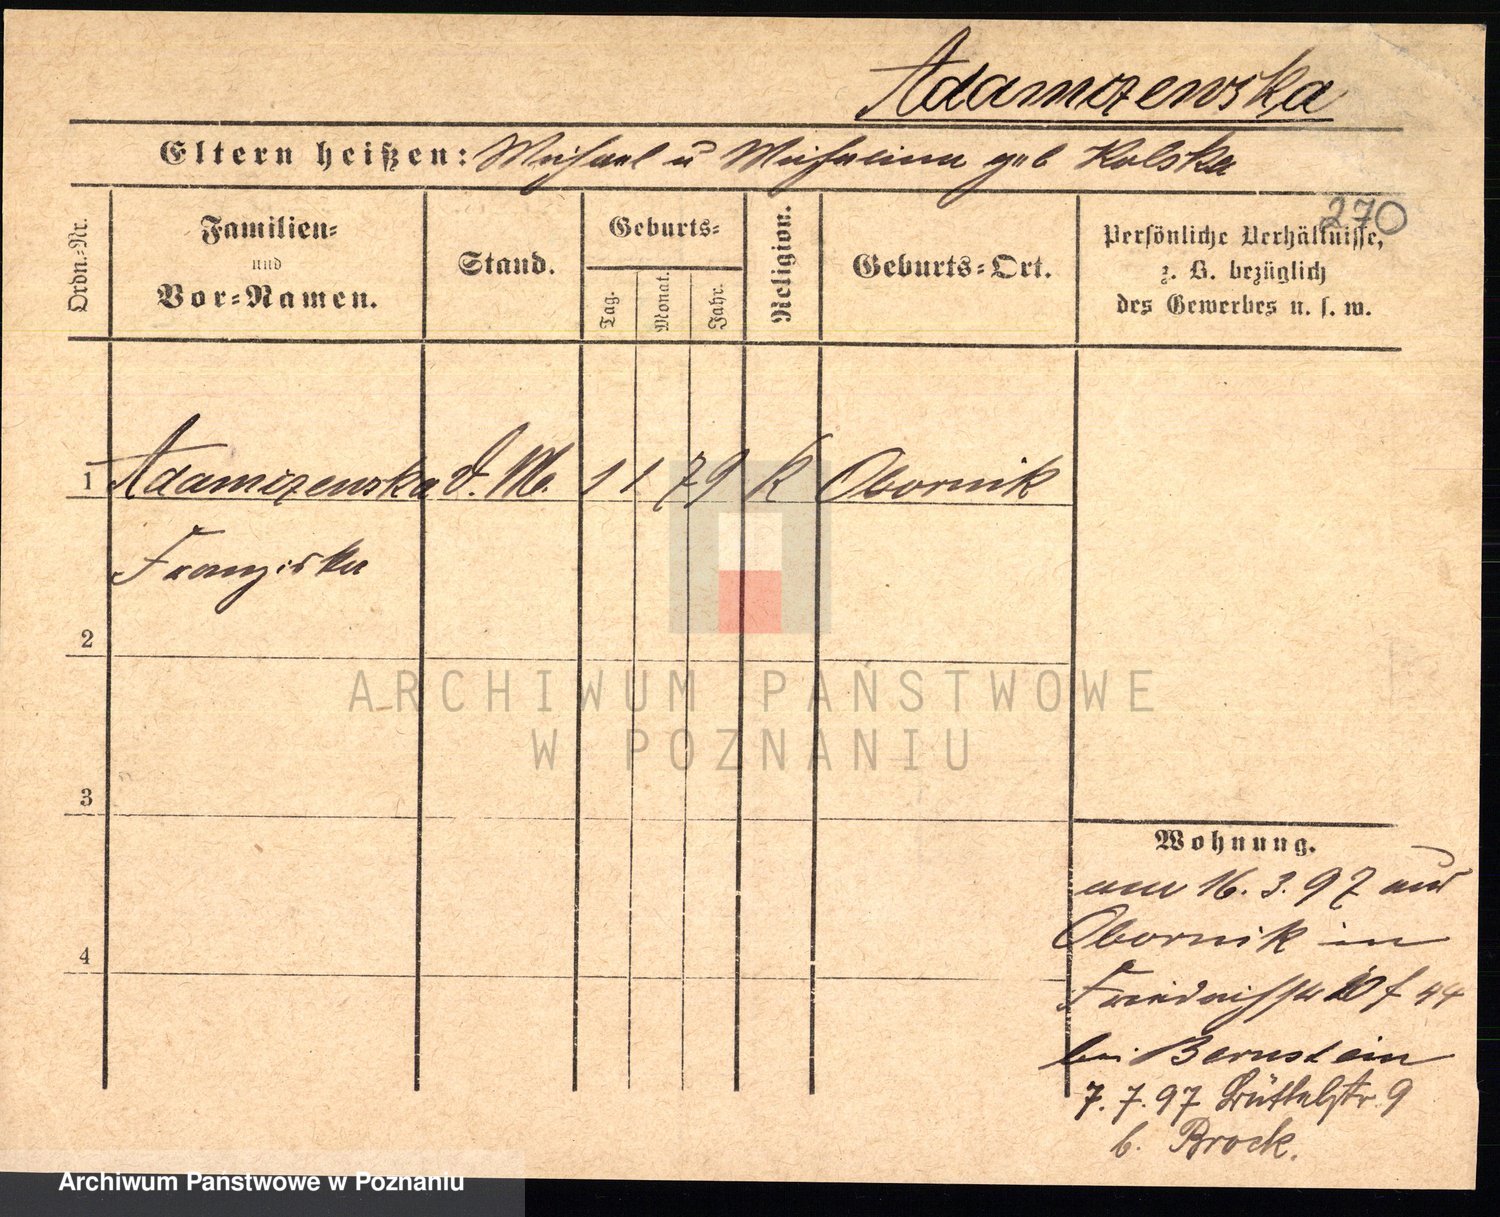 Adamczewska
Eltern heißen: Michael u Michalina geb Kolska
270
Ordn.-Nr.
Familien-
und
Vor-Namen.
Stand.
Geburts-
Tag.
Monat.
Jahr.
Religion.
Geburts-Ort.
Persönliche Verhältnisse,
z. B. bezüglich
des Gewerbes u. s. w.
1 Adamczewska d. M. 1 1 79 K Obornik
Franziska
2
3
4
ARCHIWUM PAŃSTWOWE
W POZNANIU
Wohnung.
am 16.3.97 aus
Obornik in
Friedrichstr 10 f 44
bei Bernstein
7.7.97 Büttelstr. 9
b. Brock.
Archiwum Państwowe w Poznaniu